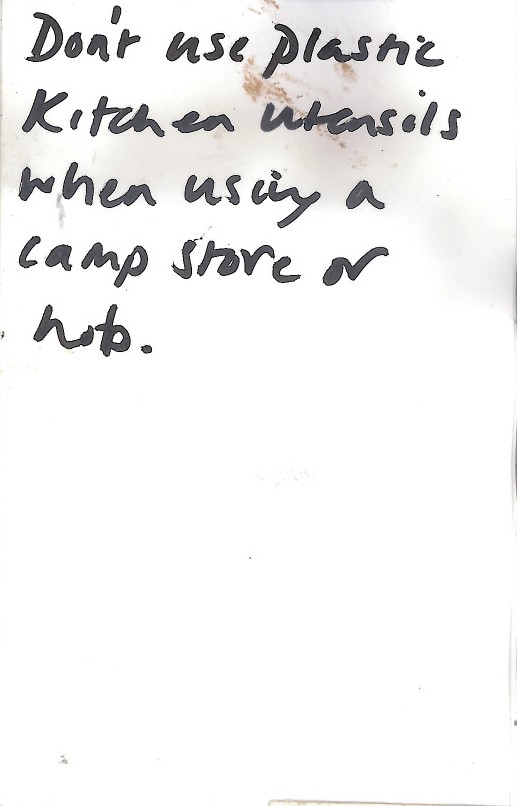 Don't use plastic
Kitchen utensils
when using a
camp stove or
hob.